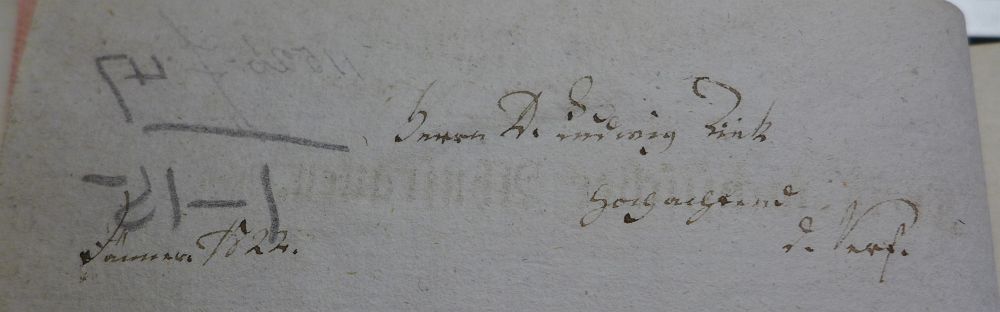 47
1-15
Herrn D. Ludwig Tieck
Hochachtend
d. Verf.
Jänner. 1822.